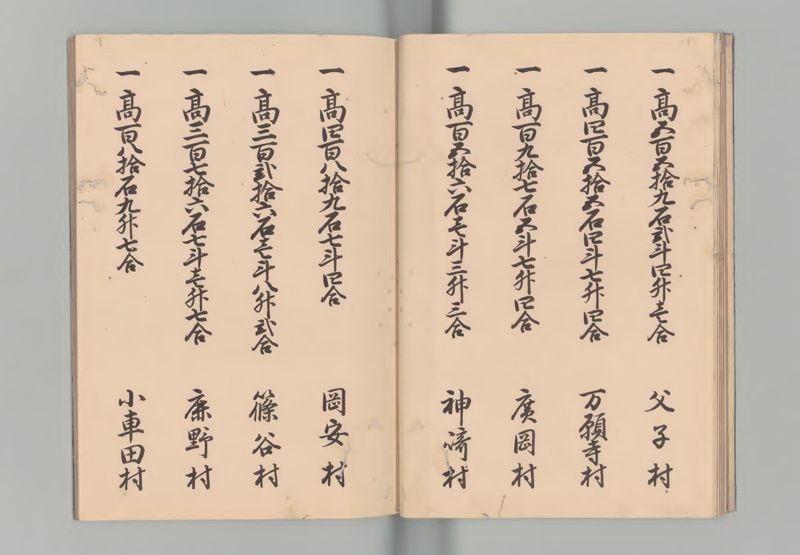 一高五百五拾九石弐斗四升壱合 父子村
一高四百五拾五石四斗七升四合 万願寺村
一高百九拾七石五斗七升四合 廣岡村
一高百五拾六石壱斗三升三合 神﨑村
一高四百八拾九石七斗四合 岡安村
一高三百弐拾六石壱斗八升弐合 篠谷村
一高三百七拾六石七斗壱升七合 鹿野村
一高百八拾石九升七合 小車田村